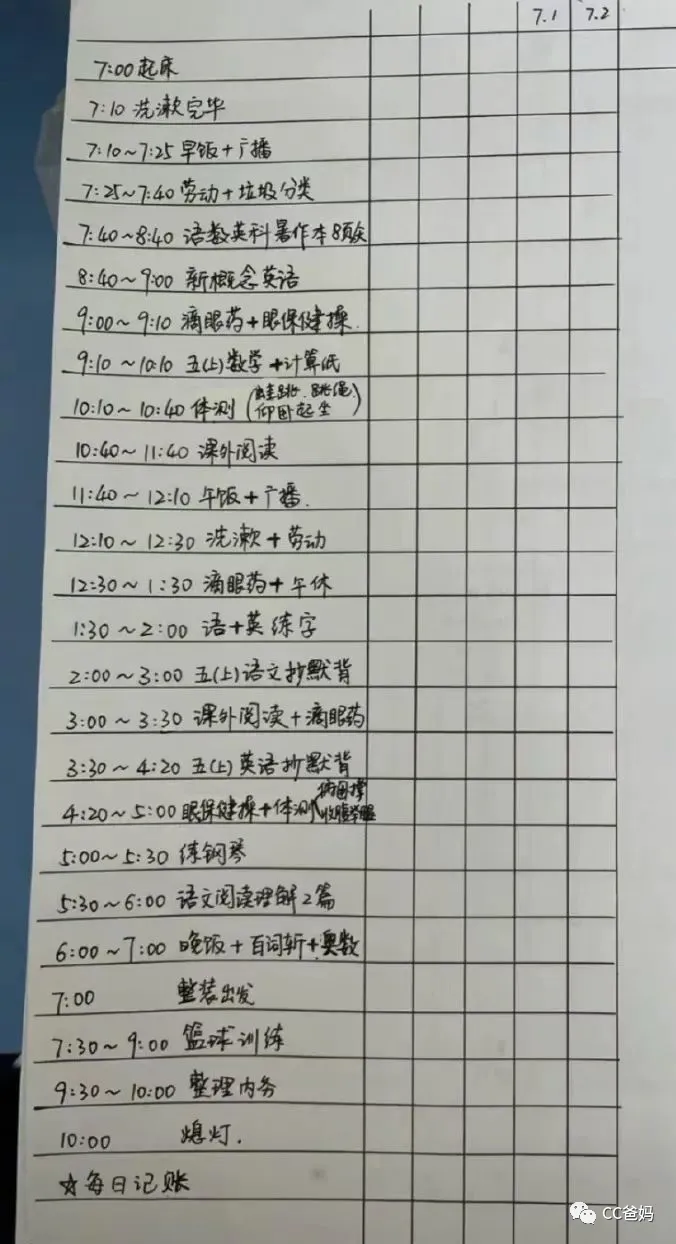 7.1 7.2
7:00起床
7:10 洗漱完毕
7:10~7:25 早饭+广播
7:25~7:40 劳动+垃圾分类
7:40~8:40 语数英科暑作本8页
8:40~9:00 新概念英语
9:00~9:10 滴眼药+眼保健操.
9:10~10:10 五(上)数学+计算纸
10:10~10:40 体测(蛙跳、跳绳、
仰卧起坐)
10:40~11:40 课外阅读
11:40~12:10 午饭+广播.
12:10~12:30 洗漱+劳动
12:30~1:30 滴眼药+午休
1:30~2:00 语+英练字
2:00~3:00 五(上)语文抄默背
3:00~3:30 课外阅读+滴眼药
3:30~4:20 五(上)英语抄默背
4:20~5:00 眼保健操+体测(俯卧撑
5:00~5:30 练钢琴
5:30~6:00 语文阅读理解2篇
6:00~7:00 晚饭+百词斩+奥数
7:00 整装出发
7:30~9:00 篮球训练
9:30~10:00 整理内务
10:00 熄灯.
☆每日记账
CC爸妈